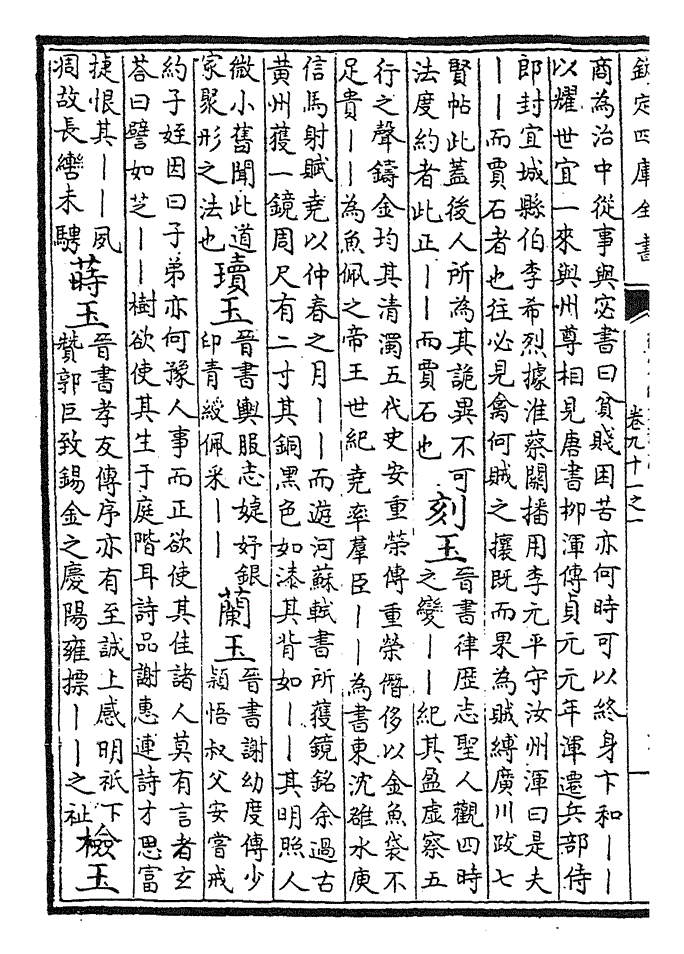 欽定四庫全書
卷九十一之一
商為治中從事與宓書曰貧賤困苦亦何時可以終身卞和丨丨
以耀世宜一來與州尊相見唐書柳渾傳貞元元年渾遷兵部侍
郎封宜城縣伯李希烈據淮蔡闗播用李元平守汝州渾曰是夫
丨丨而賈石者也往必見禽何賊之攘既而果為賊縛廣川跋七
賢帖此蓋後人所為其詭異不可
法度約者此正丨丨而賈石也
刻玉
晉書律歴志聖人觀四時
之變丨丨紀其盈虚察五
行之聲鑄金均其清濁五代史安重榮傳重榮僭侈以金魚袋不
足貴丨丨為魚佩之帝王世紀堯率羣臣丨丨為書東沈雒水庾
信馬射賦堯以仲春之月丨丨而遊河蘇軾書所獲鏡銘余過古
黄州獲一鏡周尺有二寸其銅黑色如漆其背如丨丨其明照人
微小舊聞此道
家聚形之法也
瓄玉
晉書輿服志婕妤銀
印青綬佩采丨丨
蘭玉
晉書謝幼度傳少
頴悟叔父安嘗戒
約子姪因曰子弟亦何豫人事而正欲使其佳諸人莫有言者玄
荅曰譬如芝丨丨樹欲使其生于庭階耳詩品謝惠連詩才思富
捷恨其丨丨夙
凋故長轡未騁
蒔玉
晉書孝友傳序亦有至誠上感明祇下
贊郭巨致錫金之慶陽雍摽丨丨之祉
檢玉